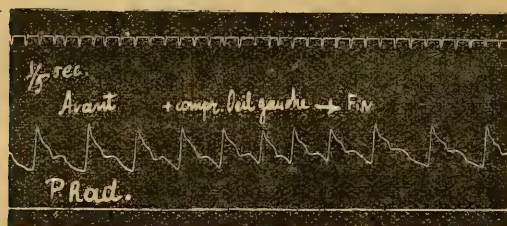 1/5 sec.
Avant + compr. Oeil gauche → Fin
P. Rad.